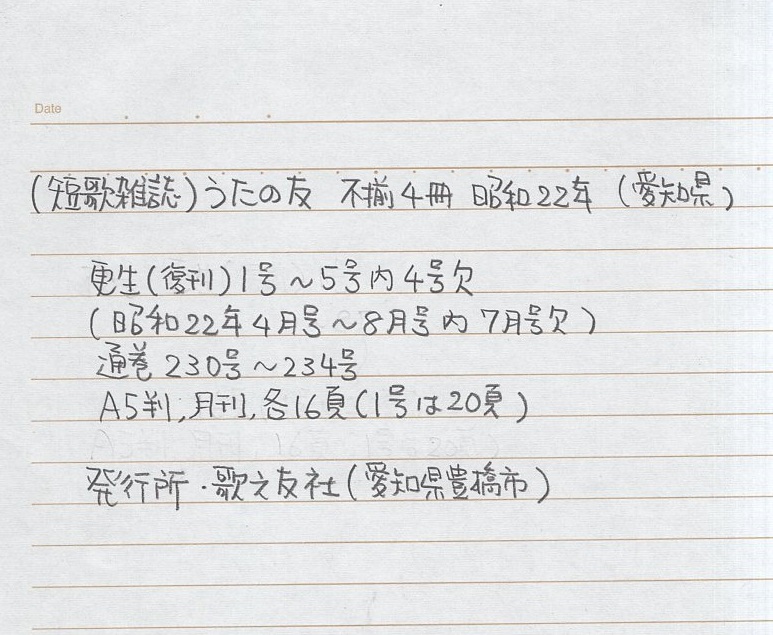 Date
(短歌雑誌)うたの友 不揃4冊 昭和22年 (愛知県)
更生(復刊)1号~5号内4号欠
(昭和22年4月号~8月号内7月号欠)
通巻230号~234号
A5判,月刊,各16頁(1号は20頁)
発行所・歌之友社(愛知県豊橋市)